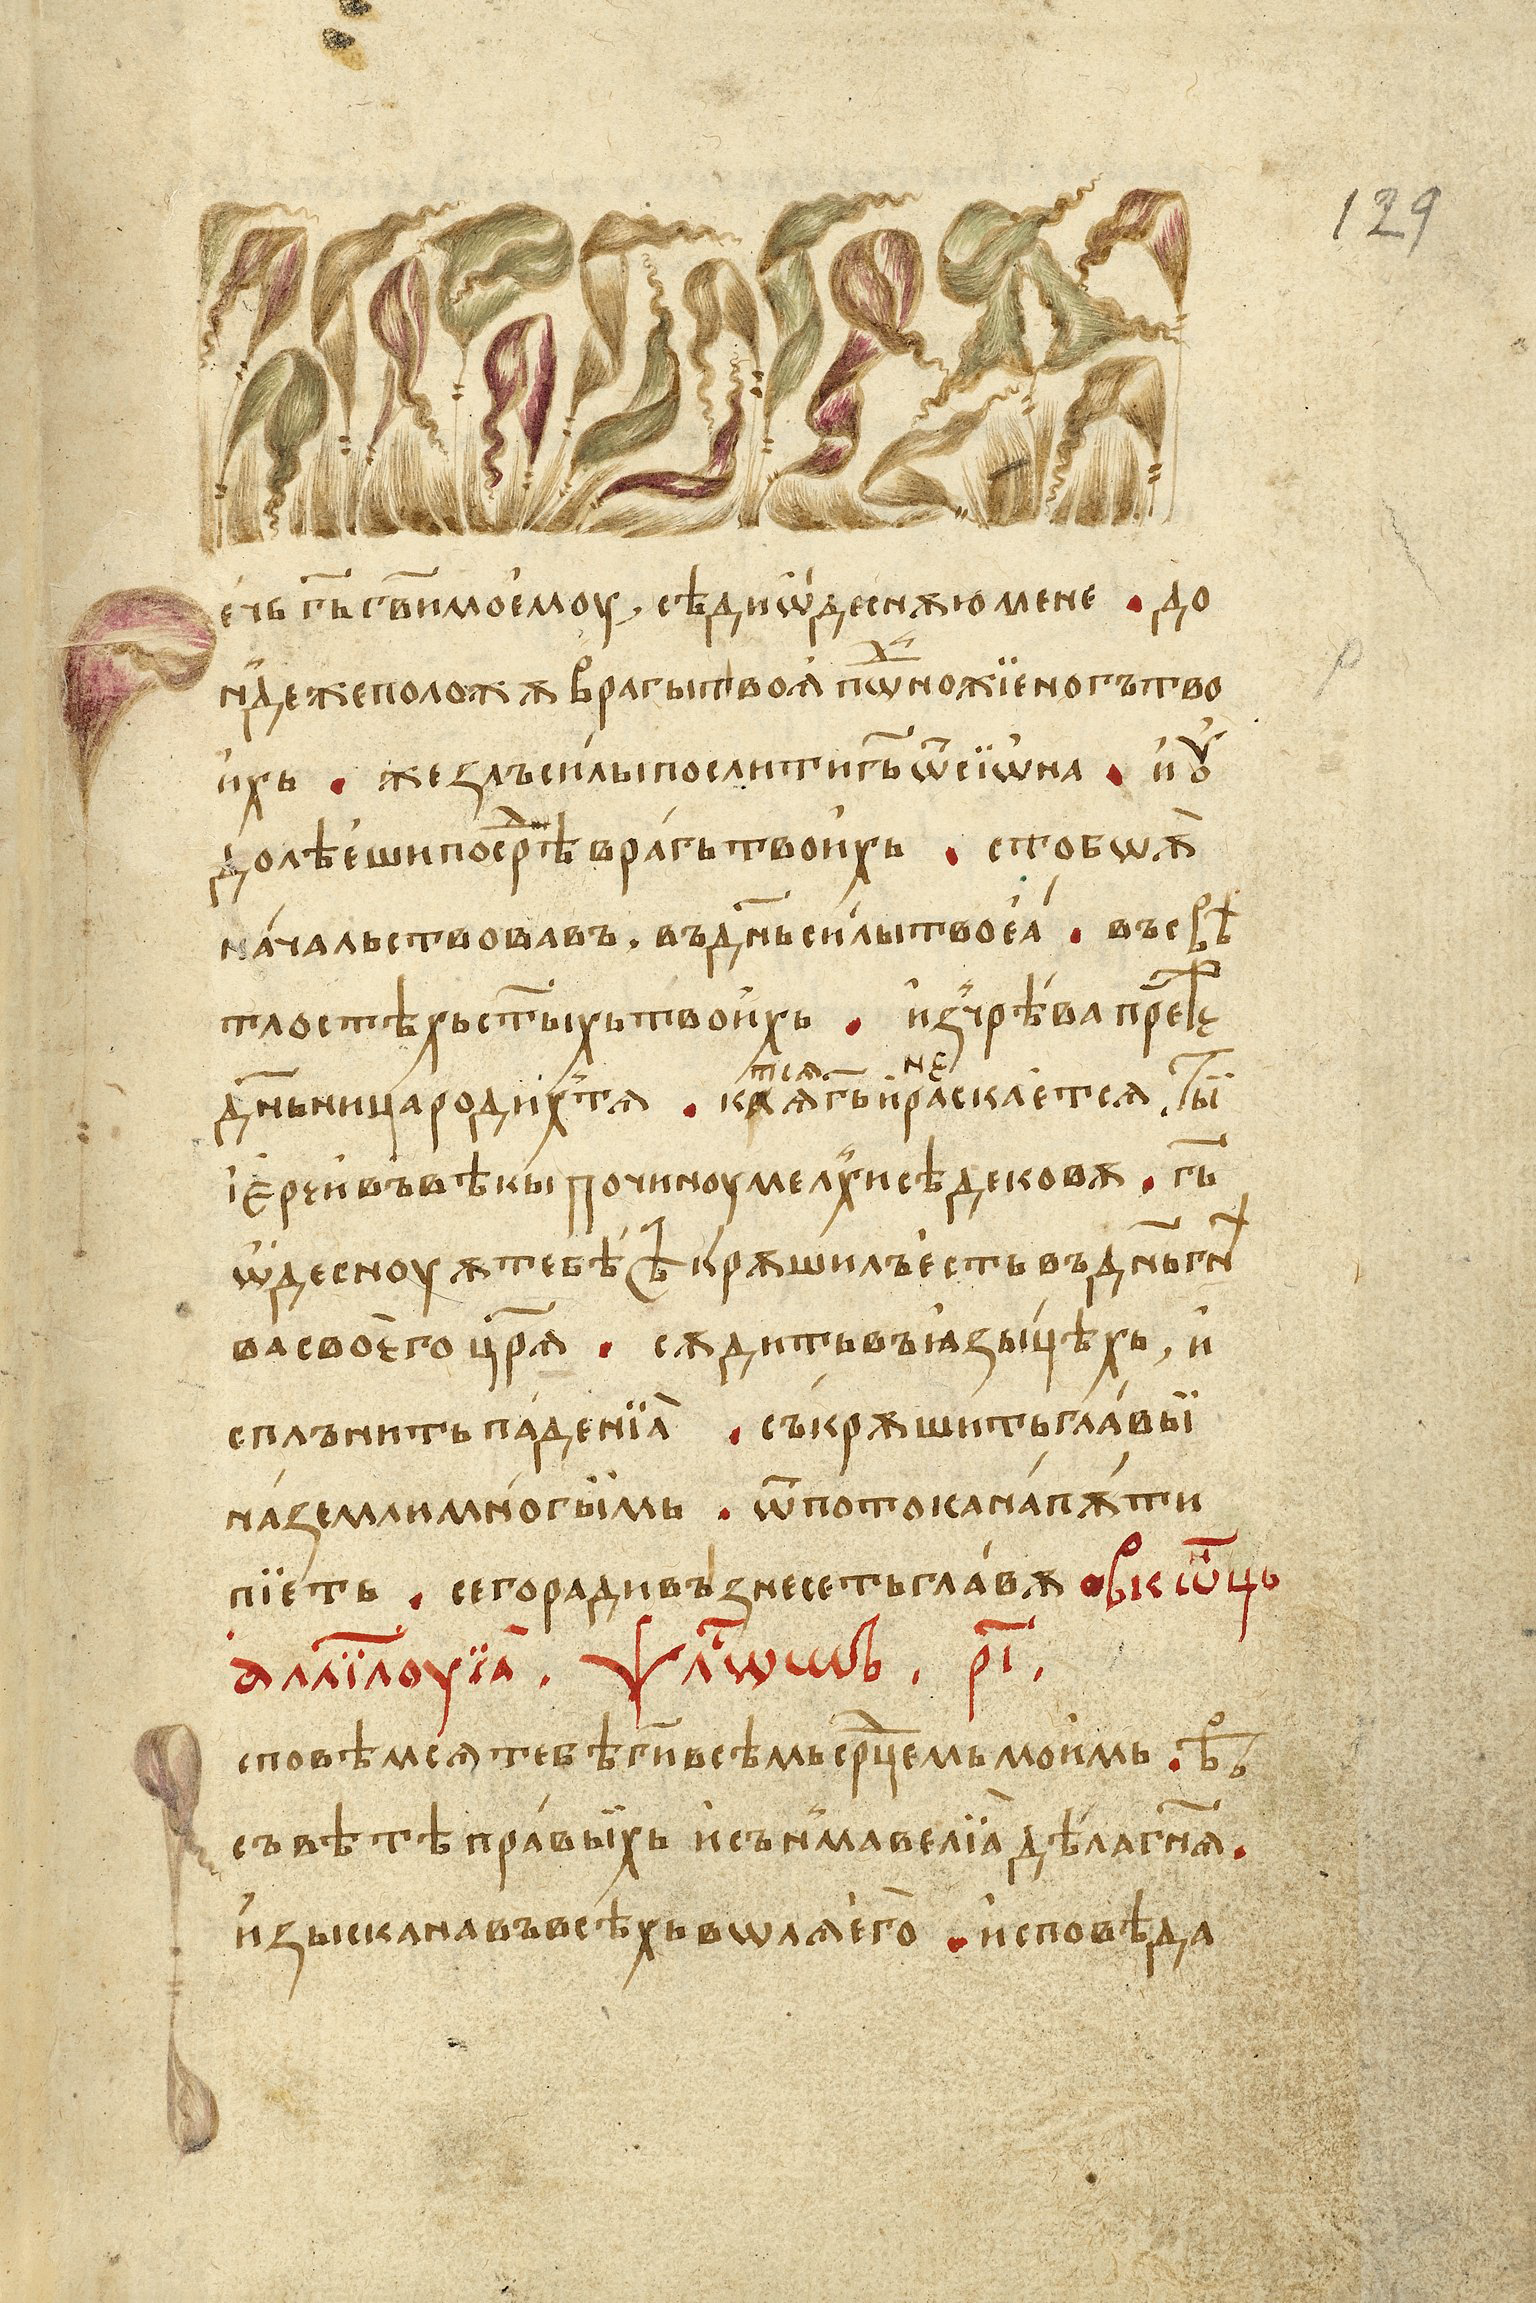 129
ечь г҃ь г҃ви моемоу, сѣди ѿдеснѫю мене · до
ндеже положѫ врагы твоѫ пѡножїе ногъ тво
ихь · жезлъ силы послить ти г҃ь ѿ сїѡна · и ꙋ
долѣеши посрⷣѣ врагь твоихь · с тобѡѫ
началъство въ, въ д҃нь силы твоеа · въ свѣ
тлостѣхь ст҃ыхь твоихь · из чрѣва прⷤе
д҃ньница родихтѧ · клѧтсѧ г҃ь и не раскаетсѧ, ты
іереи въ вѣкы по чиноу мелхиседековѫ · г҃ь
ѿдесноуѫ тебѣ съкрѫшилъ есть въ д҃нь гнѣ
ва своего цр҃ѧ · сѫдить въ іазыцѣхь, и
сплънить паденїа · съкрѫшить главы
на земли многыимь · ѿ потока на пѫти
пїеть · сего ради възнесеть главѫ
аллїлоуїа · ѱл҃ѡмь · р҃і ·
сповѣмсѧ тебѣ г҃и всѣмь ср҃цемь моимь · въ
съвѣтѣ правыихь и сънма велїа дѣла г҃нѧ ·
изыскана въ всѣхь вѡлѧ его · исповѣда